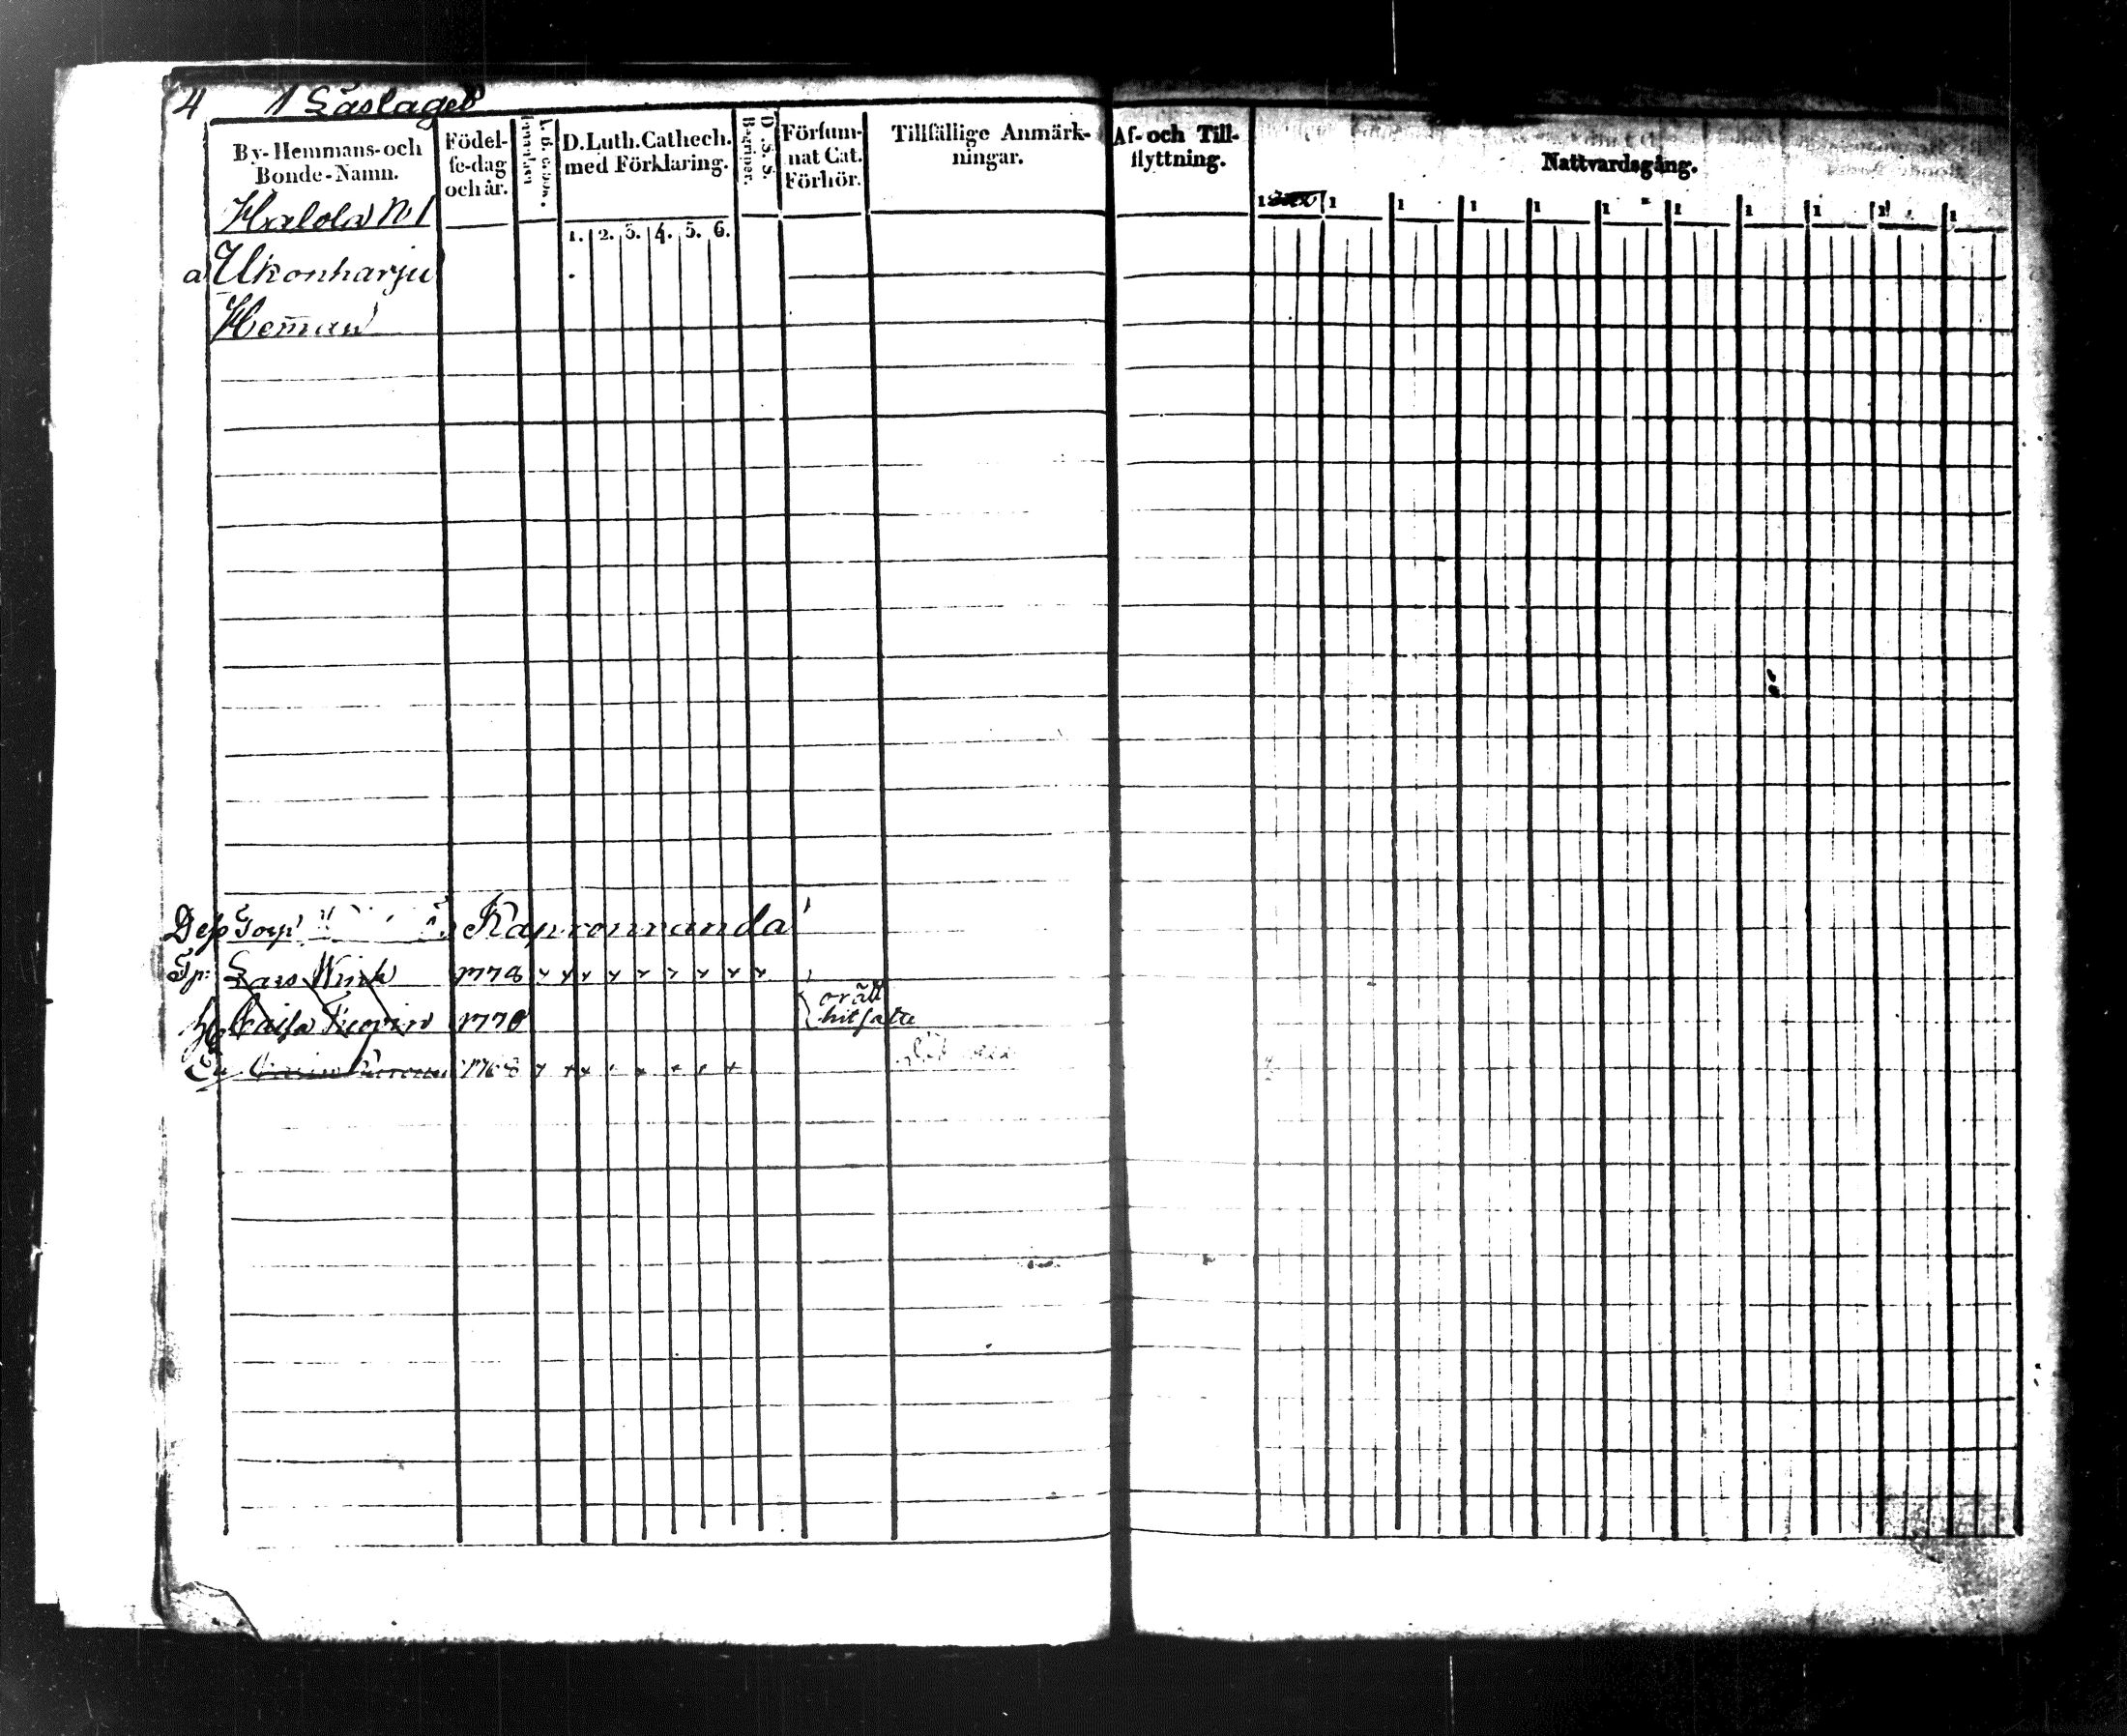 4 1 Läslaget
By-Hemmans-och Bonde-Namn.
Födel-se-dag och år.
D. Luth. Cathech. med Förklaring.
D. S. S. Begriper.
Försum-nat Cat. Förhör.
Tillfällige Anmärk-ningar.
Af- och Till-flyttning.
Nattvardsgång.
1 1 1 1 1 1 1 1 1 1 1
1. 2. 3. 4. 5. 6.
Halola N 1
a Ukonharju
Hem̄an
Dess Torp
Tp: Lars 1778
Hu Caisa 1770
orätt hitsatte
En 1768